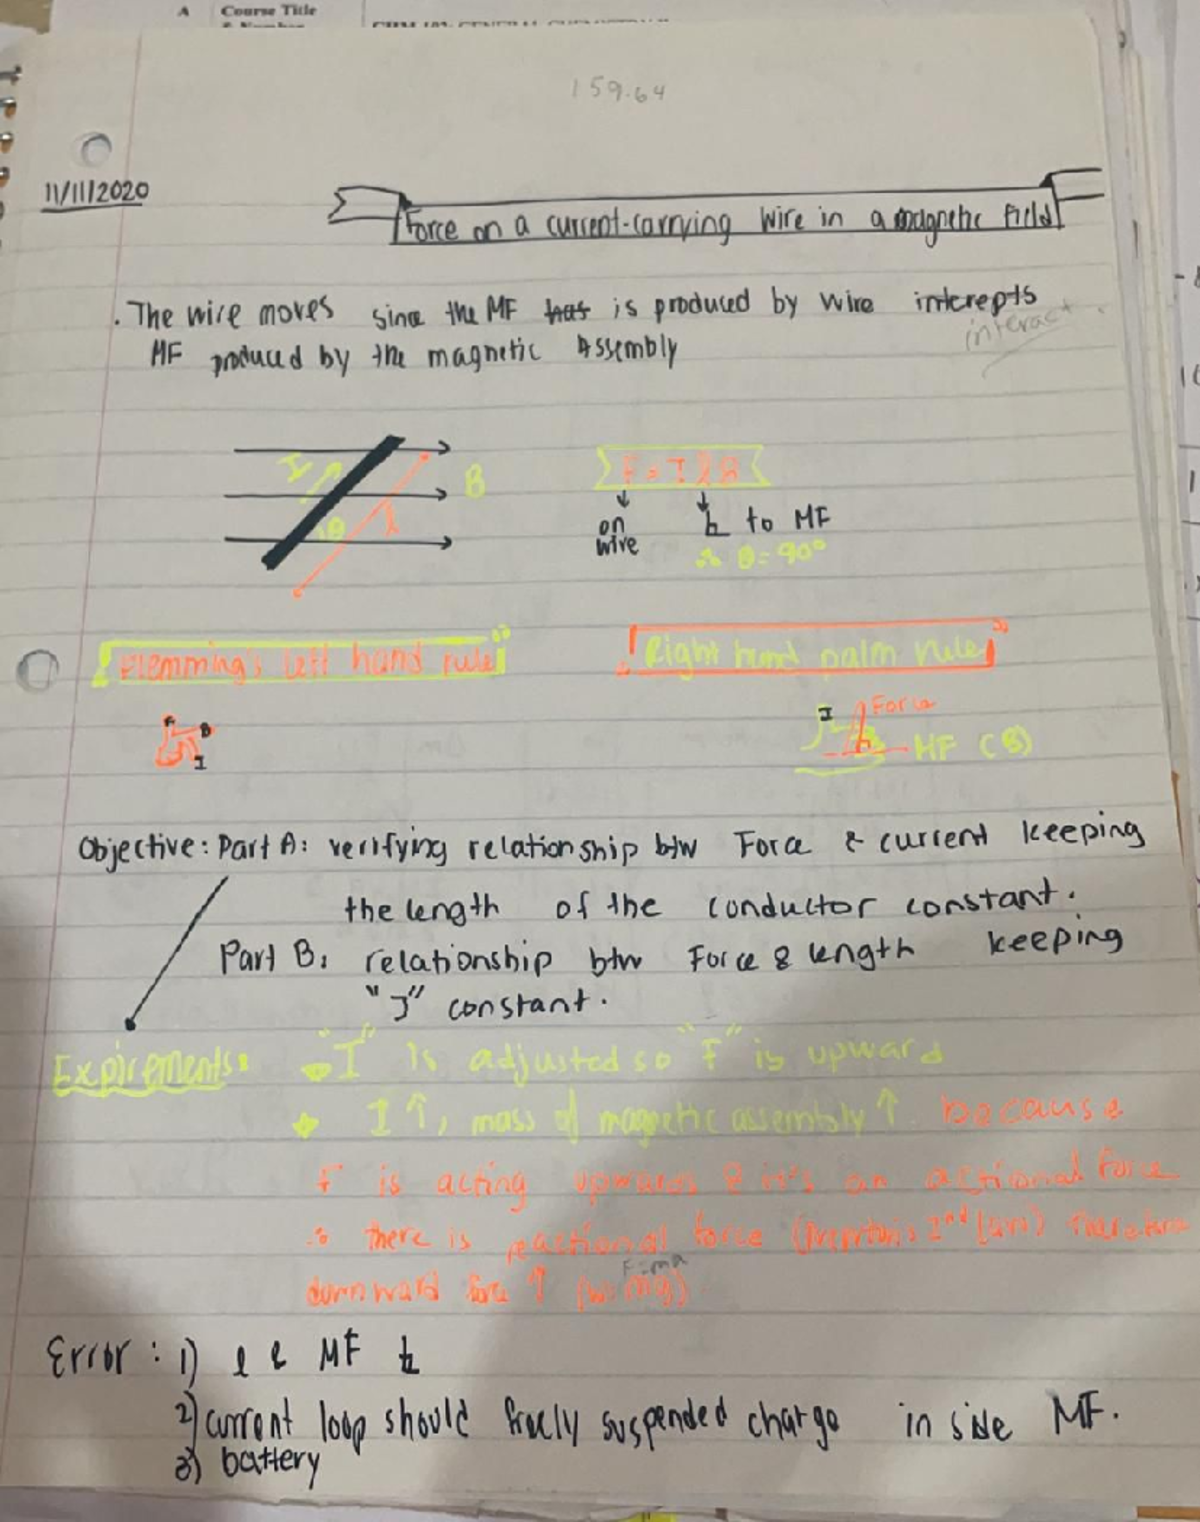 A Course Title
159.64
11/11/2020
Force on a current-carrying wire in a magnetic field
. The wire moves since the MF has is produced by wire intercepts
interact
MF produced by the magnetic Assembly
I
B
θ
l
F = I l B
on
wire
to MF
∴ θ = 90°
Flemming's left hand rule
Right hand palm rule
F
B
I
I
Force
MF (B)
Objective: Part A: verifying relationship btw Force & current keeping
the length of the conductor constant.
Part B: relationship btw Force & length keeping
"I" constant.
Expirements: "I" is adjusted so "F" is upward
I↑, mass of magnetic assembly↑. because
F is acting upwards & it's an actional force
∴ there is reactional force (Newton's 2nd law) Therefore
F=ma
downward force ↑ (w=mg)
Error: 1) l & MF
2) current loop should freely suspended charge in side MF.
3) battery